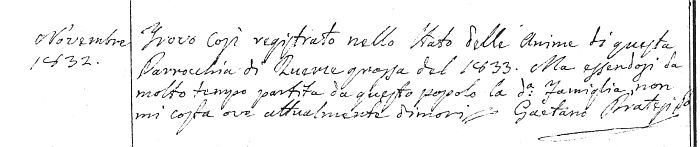 Novembre
1832.
Trovo così registrato nello Stato delle Anime di questa
Parrocchia di Querce grossa del 1833. Ma essendosi da
molto tempo partita da questo popolo la da. Famiglia, non
mi costa ove attualmente dimori, Gaetano Pratesi